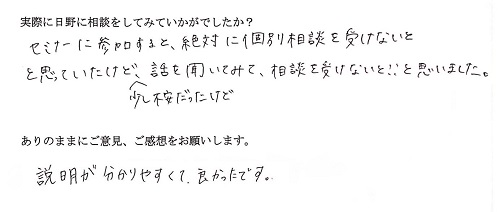 実際に日野に相談をしてみていかがでしたか？
セミナーに参加すると、絶対に個別相談を受けないと
と思っていたけど、話を聞いてみて、相談を受けないと!!と思いました。
少し不安だったけど
ありのままにご意見、ご感想をお願いします。
説明が分かりやすくて、良かったです。